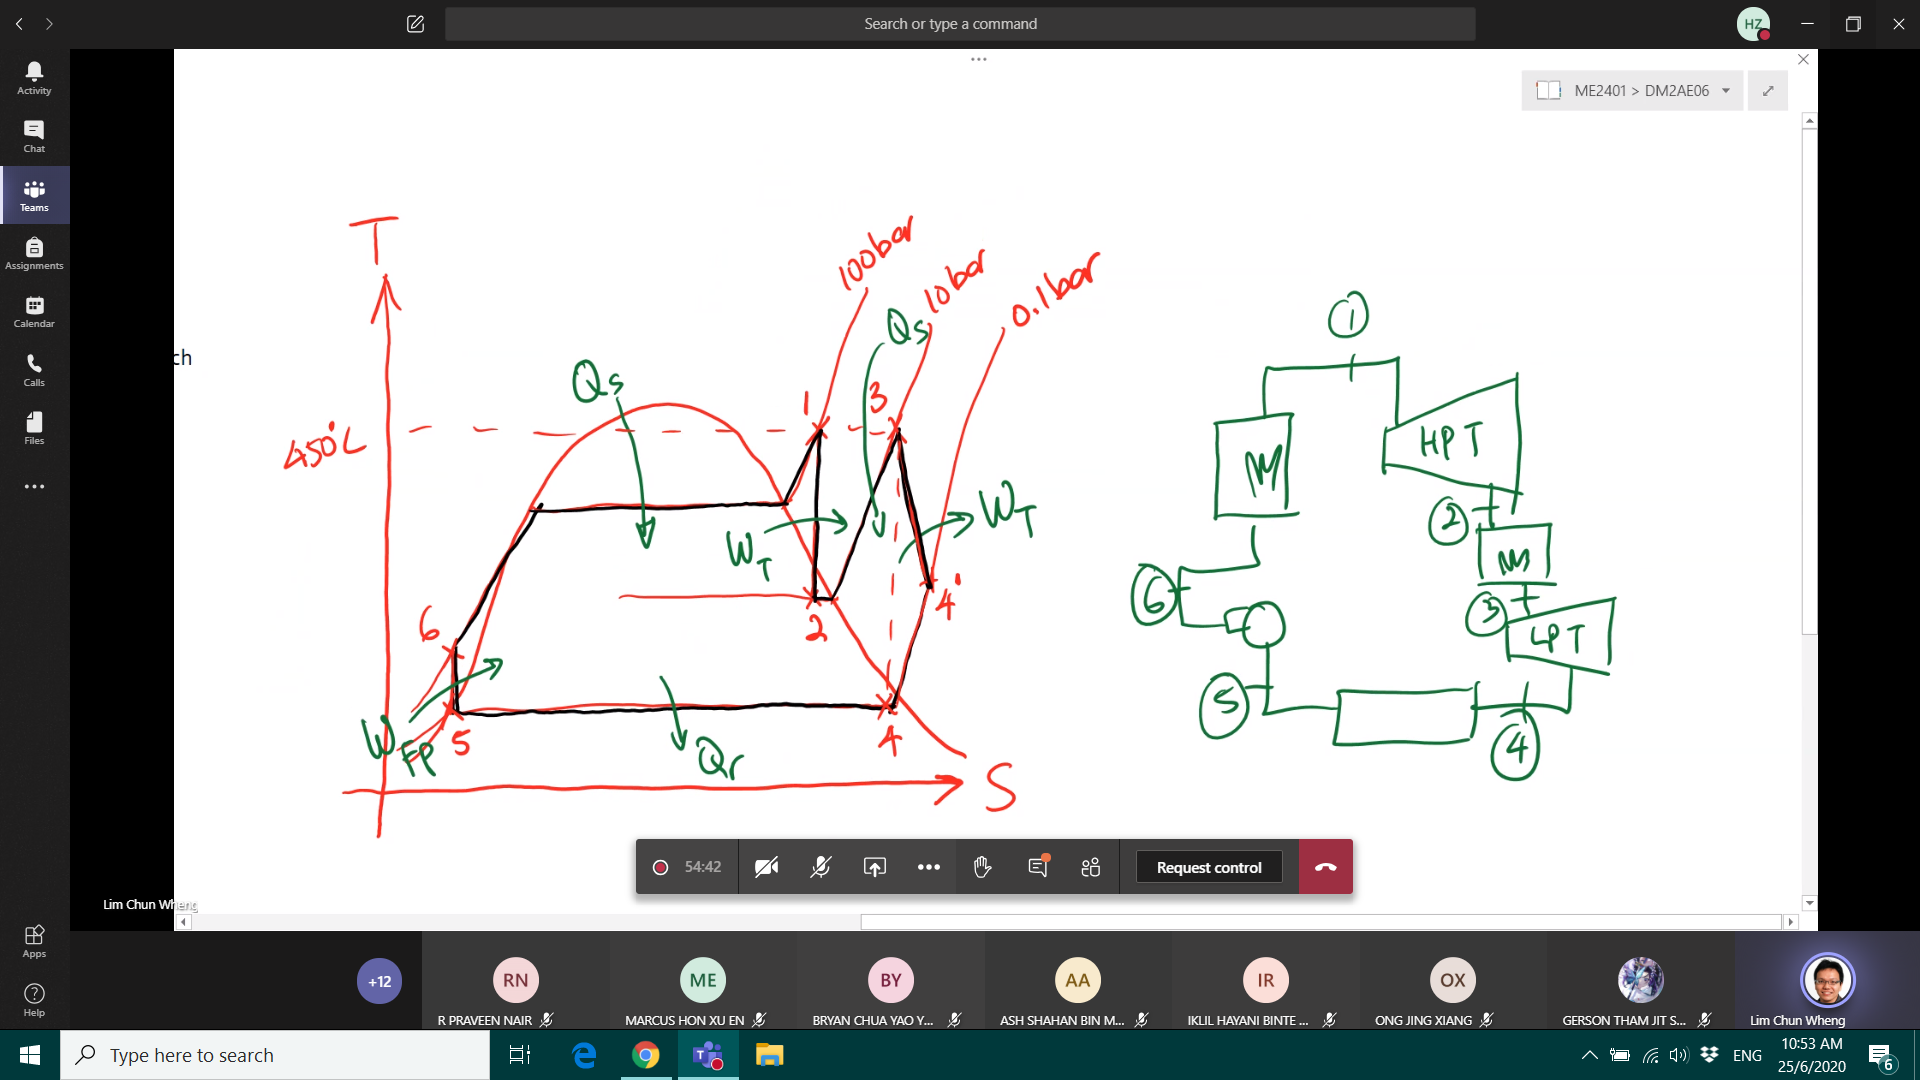 Search or type a command
HZ
Activity
Chat
Teams
Assignments
Calendar
Calls
Files
Apps
Help
ME2401 > DM2AE06
ch
T
100bar
10bar
0.1bar
Qs
Qs
450°C
1
3
WT
WT
2
4'
6
5
4
WFP
Qr
S
1
HPT
2
3
LPT
6
5
4
54:42
Request control
Lim Chun Wheng
+12
RN
R PRAVEEN NAIR
ME
MARCUS HON XU EN
BY
BRYAN CHUA YAO Y...
AA
ASH SHAHAN BIN M...
IR
IKLIL HAYANI BINTE ...
OX
ONG JING XIANG
GERSON THAM JIT S...
Lim Chun Wheng
Type here to search
ENG
10:53 AM
25/6/2020
6